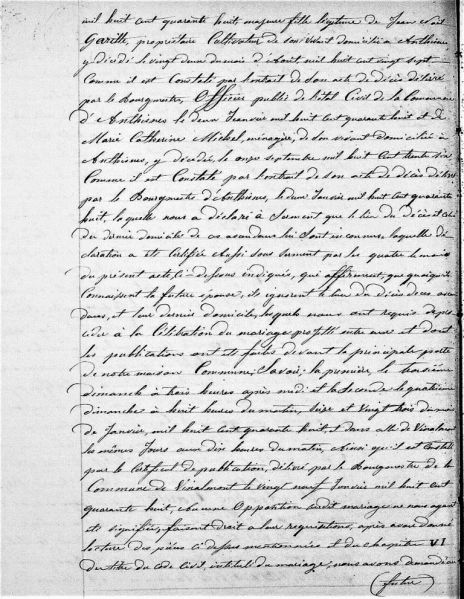 mil huit cent quarante huit, majeure fille légitime de Jean
Garitte, propriétaire Cultivateur de son vivant domicilié à Anthisnes
y décédé le vingt deux du mois d'Août mil huit cent vingt sept
Comme il est Constaté par l'extrait de son acte de décès délivré
par le Bourgmestre, Officier public de l'état Civil de la Commune
d'Anthisnes le deux Janvier mil huit cent quarante huit et de
Marie Catherine Michel, ménagère, de son vivant domiciliée à
Anthisnes, y décédée, le onze septembre mil huit cent trente
Comme il est Constaté par l'extrait de son acte de décès délivré
par le Bourgmestre d'Anthisnes, le deux Janvier mil huit cent quarante
huit, laquelle nous a déclaré à Serment que le lieu du décès et celui
du dernier domicile de ses ascendans lui sont inconnus, laquelle dé
claration a été Certifiée Aussi sous serment par les quatre témoins
du présent acte, Ci-dessous indiqués, qui affirment, que quoiqu'ils
Connaissent la future épouse, ils ignorent le lieu du décès de ses ascen
dans, et leur dernier domicile, lesquels nous ont requis de pro
céder à la Célébration du mariage projetté entre eux et dont
les publications ont été faites devant la principale porte
de notre maison Commune; Savoir; la première, le troisième
dimanche à trois heures après midi et la Seconde le quatrième
dimanches à huit heures du matin, seize et Vingt trois du mois
de Janvier, mil huit cent quarante huit, et dans celle de Vinalmont
les mêmes Jours aux dix heures du matin, Ainsi qu'il est Constaté
par le Certificat de publication, délivré par le Bourgmestre de la
Commune de Vinalmont le vingt neuf Janvier mil huit cent
quarante huit, Aucune Opposition audit mariage ne nous ayant
été signifiée, faisant droit à leur réquisitions, après avoir donné
lecture des pièces ci dessus mentionnées et du chapitre VI
du titre du code Civil, intitulé du mariage; nous avons demandé au
(futur